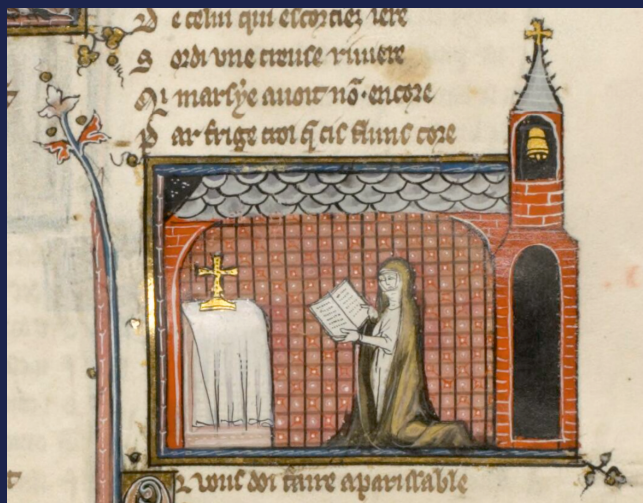 D e celui qui escorciez iere
S ordi une creuse riviere
Qi marsye avoit nõ· encore
P ar frige croi q̃ cis fluns core
Or vous doi faire aparissable